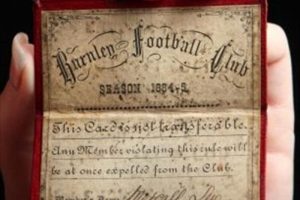 Burnley Football Club
SEASON 1884-5.
This Card is not transferable.
Any Member violating this rule will
be at once expelled from the Club.